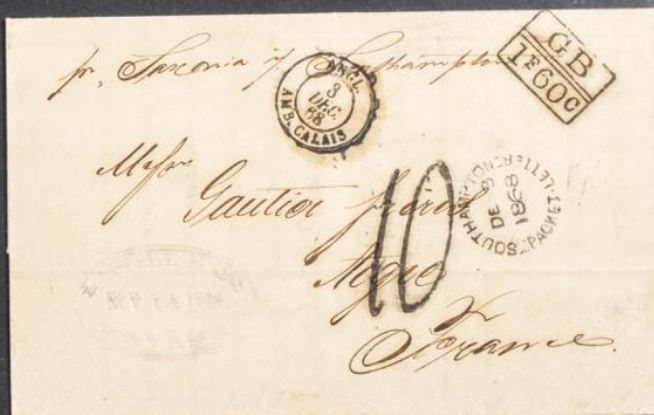 pr. Saxonia via Southampton
GB
1F60C
ANGL.
3
DEC.
68
AMB. CALAIS
Messrs
Gautier frères
SOUTHAMPTON
PACKET-LETTER
DE
1868
10
France